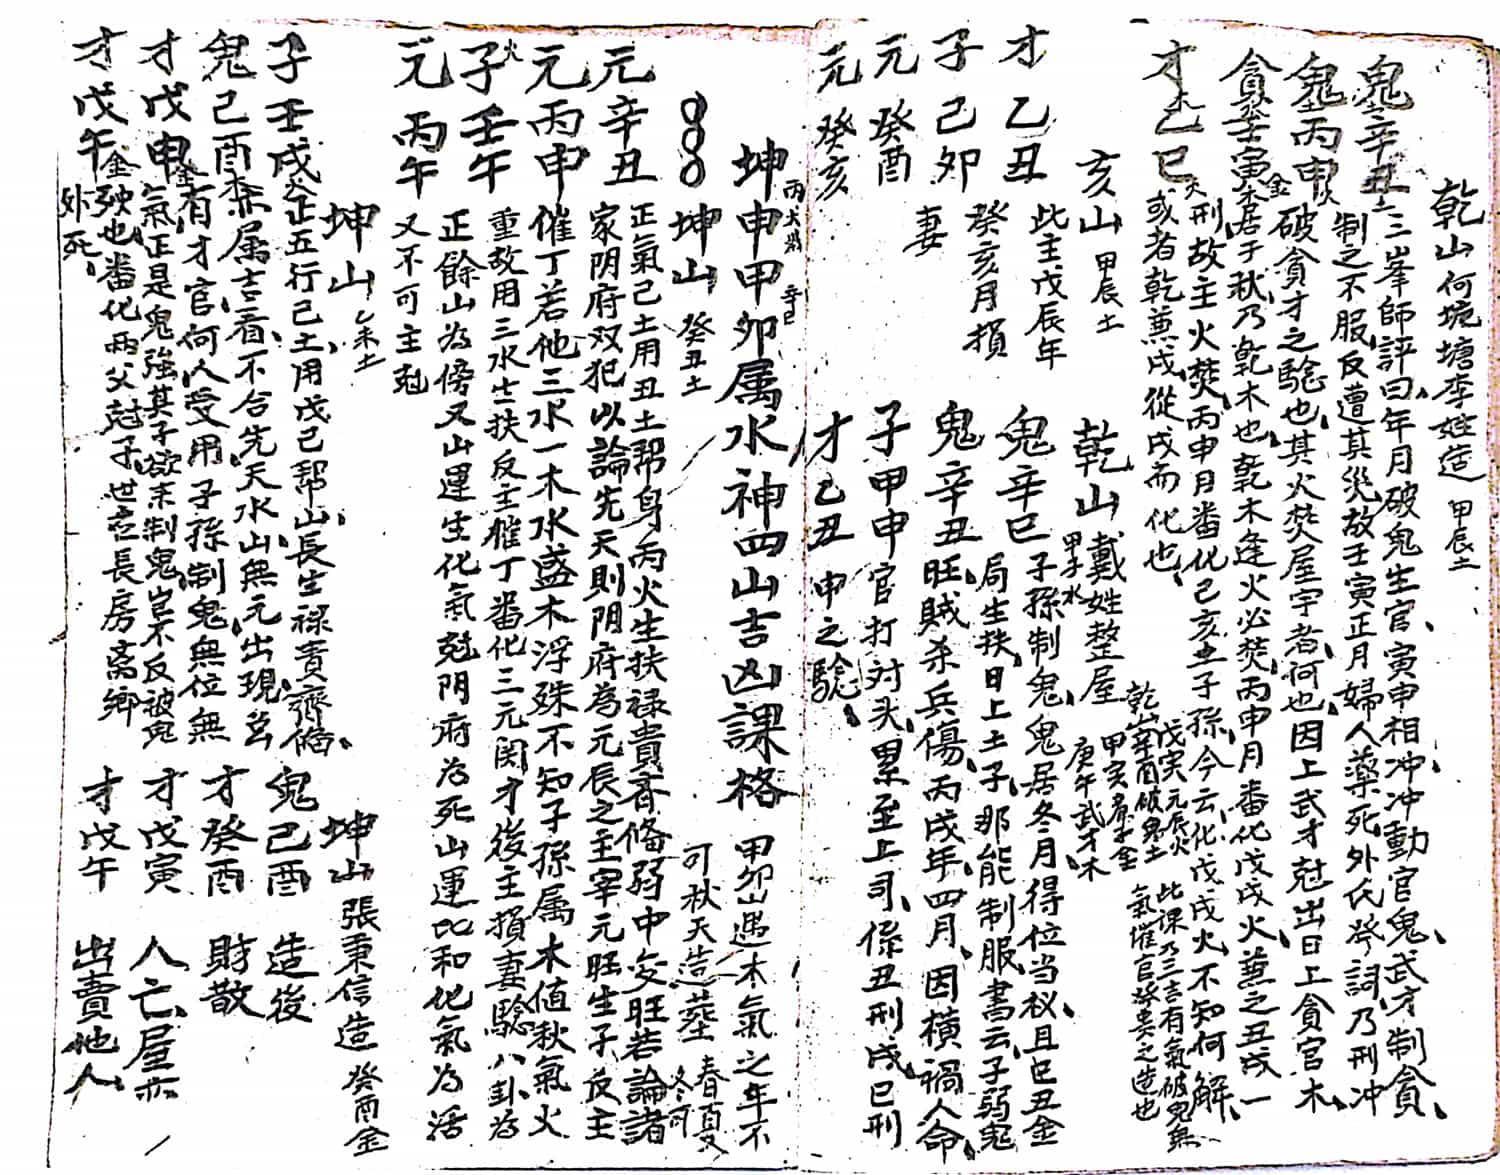 乾山何境塘李姓造 甲辰土
鬼辛丑土 三峯師評曰年月破鬼生官寅申相冲冲動官鬼武才制貪
制之不服反遭其災故壬寅正月婦人藥死外氏詞乃刑冲
鬼丙申火 破貪才之驗也其火焚屋宇者何也因上武才尅出日上貪官木
貪壬寅金 木居于秋乃乾木也乾木逢火必焚丙申月番化戊戌火兼之丑戌一
刑故主火焚丙申月番化己亥土子孫今云化戊戌火不知何解
才乙巳火 或者乾兼戌從戌而化也
亥山 甲辰土
才乙丑 此主戊辰年
子己卯 癸亥月損
元癸酉 妻
元癸亥
乾山戴姓整屋 甲子水
乾山辛酉破鬼土
戊寅元辰火
甲寅 金
庚午武才木
此课乃三吉有氣破鬼無
氣催官發貴之造也
鬼辛巳 子孫制鬼鬼居冬月得位当权且巳丑金
局生扶日上土子那能制服書云子弱鬼
鬼辛丑 旺賊杀兵傷丙戌年四月因横禍人命
子甲申 官打对头累至上司係丑刑戌巳刑
才乙丑 申之驗
坤申甲卯属水神四山吉凶課格 甲卯山遇木氣之年不
可秋天造葬 春夏
冬可
坤山 癸丑土
元辛丑 正氣己土用丑土帮身丙火生扶禄貴齊俻弱中变旺若論諸
家阴府双犯以論先天則阴府為元辰之主宰元旺生子反主
元丙申 催丁若他三水一木水盛木浮殊不知子孫属木值秋氣火
子壬午 重故用三水生扶反主催丁番化三元関才後主損妻驗八卦為
正餘山為傍又山運生化氣尅阴府為死山運比和化氣为活
元丙午 又不可主尅
坤山 乙未土
子壬戌 正五行己土用戊己帮山長生禄貴齊俻
鬼己酉 木属吉看不合先天水山無元出現
才戊申 有才官何人受用子孫制鬼無位無
氣正是鬼強其子欲来制鬼豈不反被鬼
才戊午 殃也番化両父尅子世言長房离鄉
外死
坤山 張秉信造 癸酉金
鬼己酉 造後
才癸酉 財散
才戊寅 人亡屋亦
才戊午 出賣他人